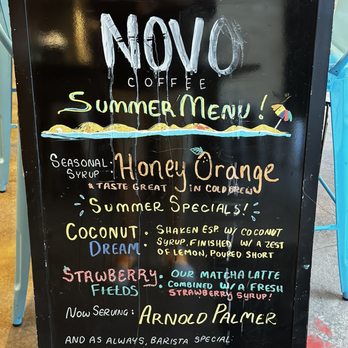 NOVO
COFFEE
SUMMER MENU!
SEASONAL SYRUP: HONEY ORANGE
& TASTE GREAT IN COLD BREW
SUMMER SPECIALS!
COCONUT DREAM • SHAKEN ESP. W/ COCONUT
SYRUP, FINISHED W/ A ZEST
OF LEMON, POURED SHORT
STAWBERRY FIELDS • OUR MATCHA LATTE
COMBINED W/ A FRESH
STRAWBERRY SYRUP!
NOW SERVING: ARNOLD PALMER
AND AS ALWAYS, BARISTA SPECIAL: